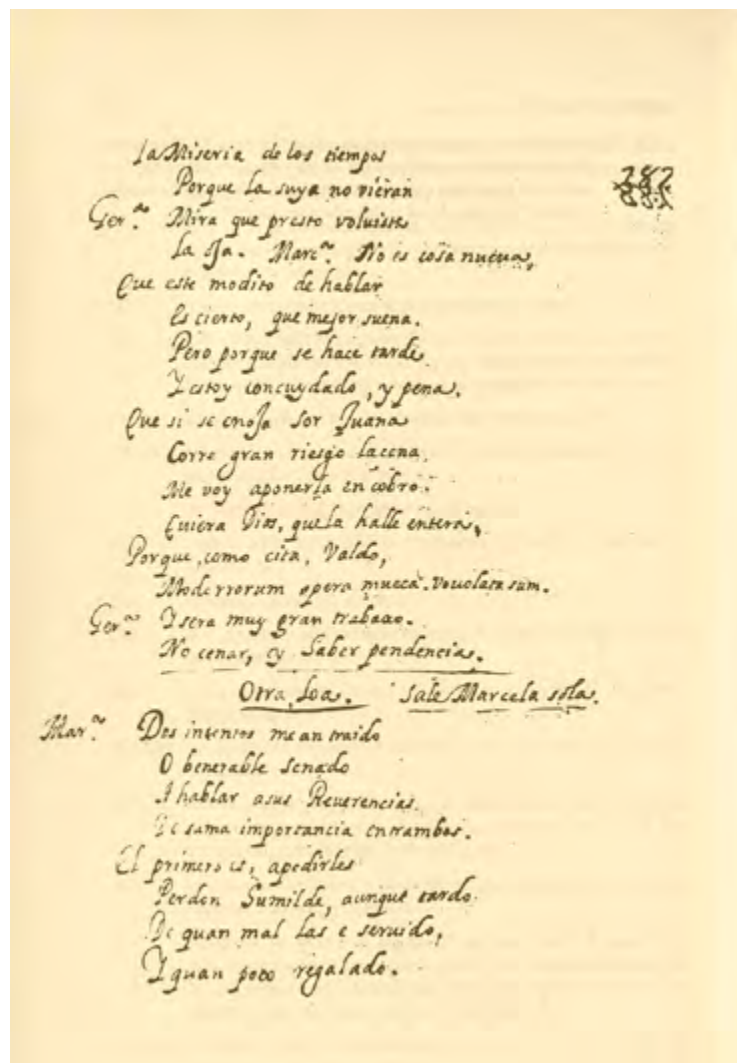 la Miseria de los tiempos
Porque la suya no vieran
282
Ger.ª Mira que presto voluiste
la oja. Marc.ª No es cosa nueua,
Que este modito de hablar
Es cierto, que mejor suena.
Pero porque se hace tarde
Y estoy con cuydado, y pena.
Que si se enoja Sor Juana
Corre gran riesgo la cena,
Me voy a ponerla en cobro.
Quiera Dios, que la halle entera,
Porque, como cita, Valdo,
opera mueca. sum.
Ger.ª Y sera muy gran trabaxo.
No cenar, y Saber pendencia.
Otra, loa. Sale Marcela sola.
Mar.ª Dos intentos me an traido
O benerable Senado
A hablar a sus Reuerencias.
De suma importancia entrambos.
El primero es, a pedirles
Perdon Humilde, aunque tardo
De quan mal las e seruido,
Y quan poco regalado.